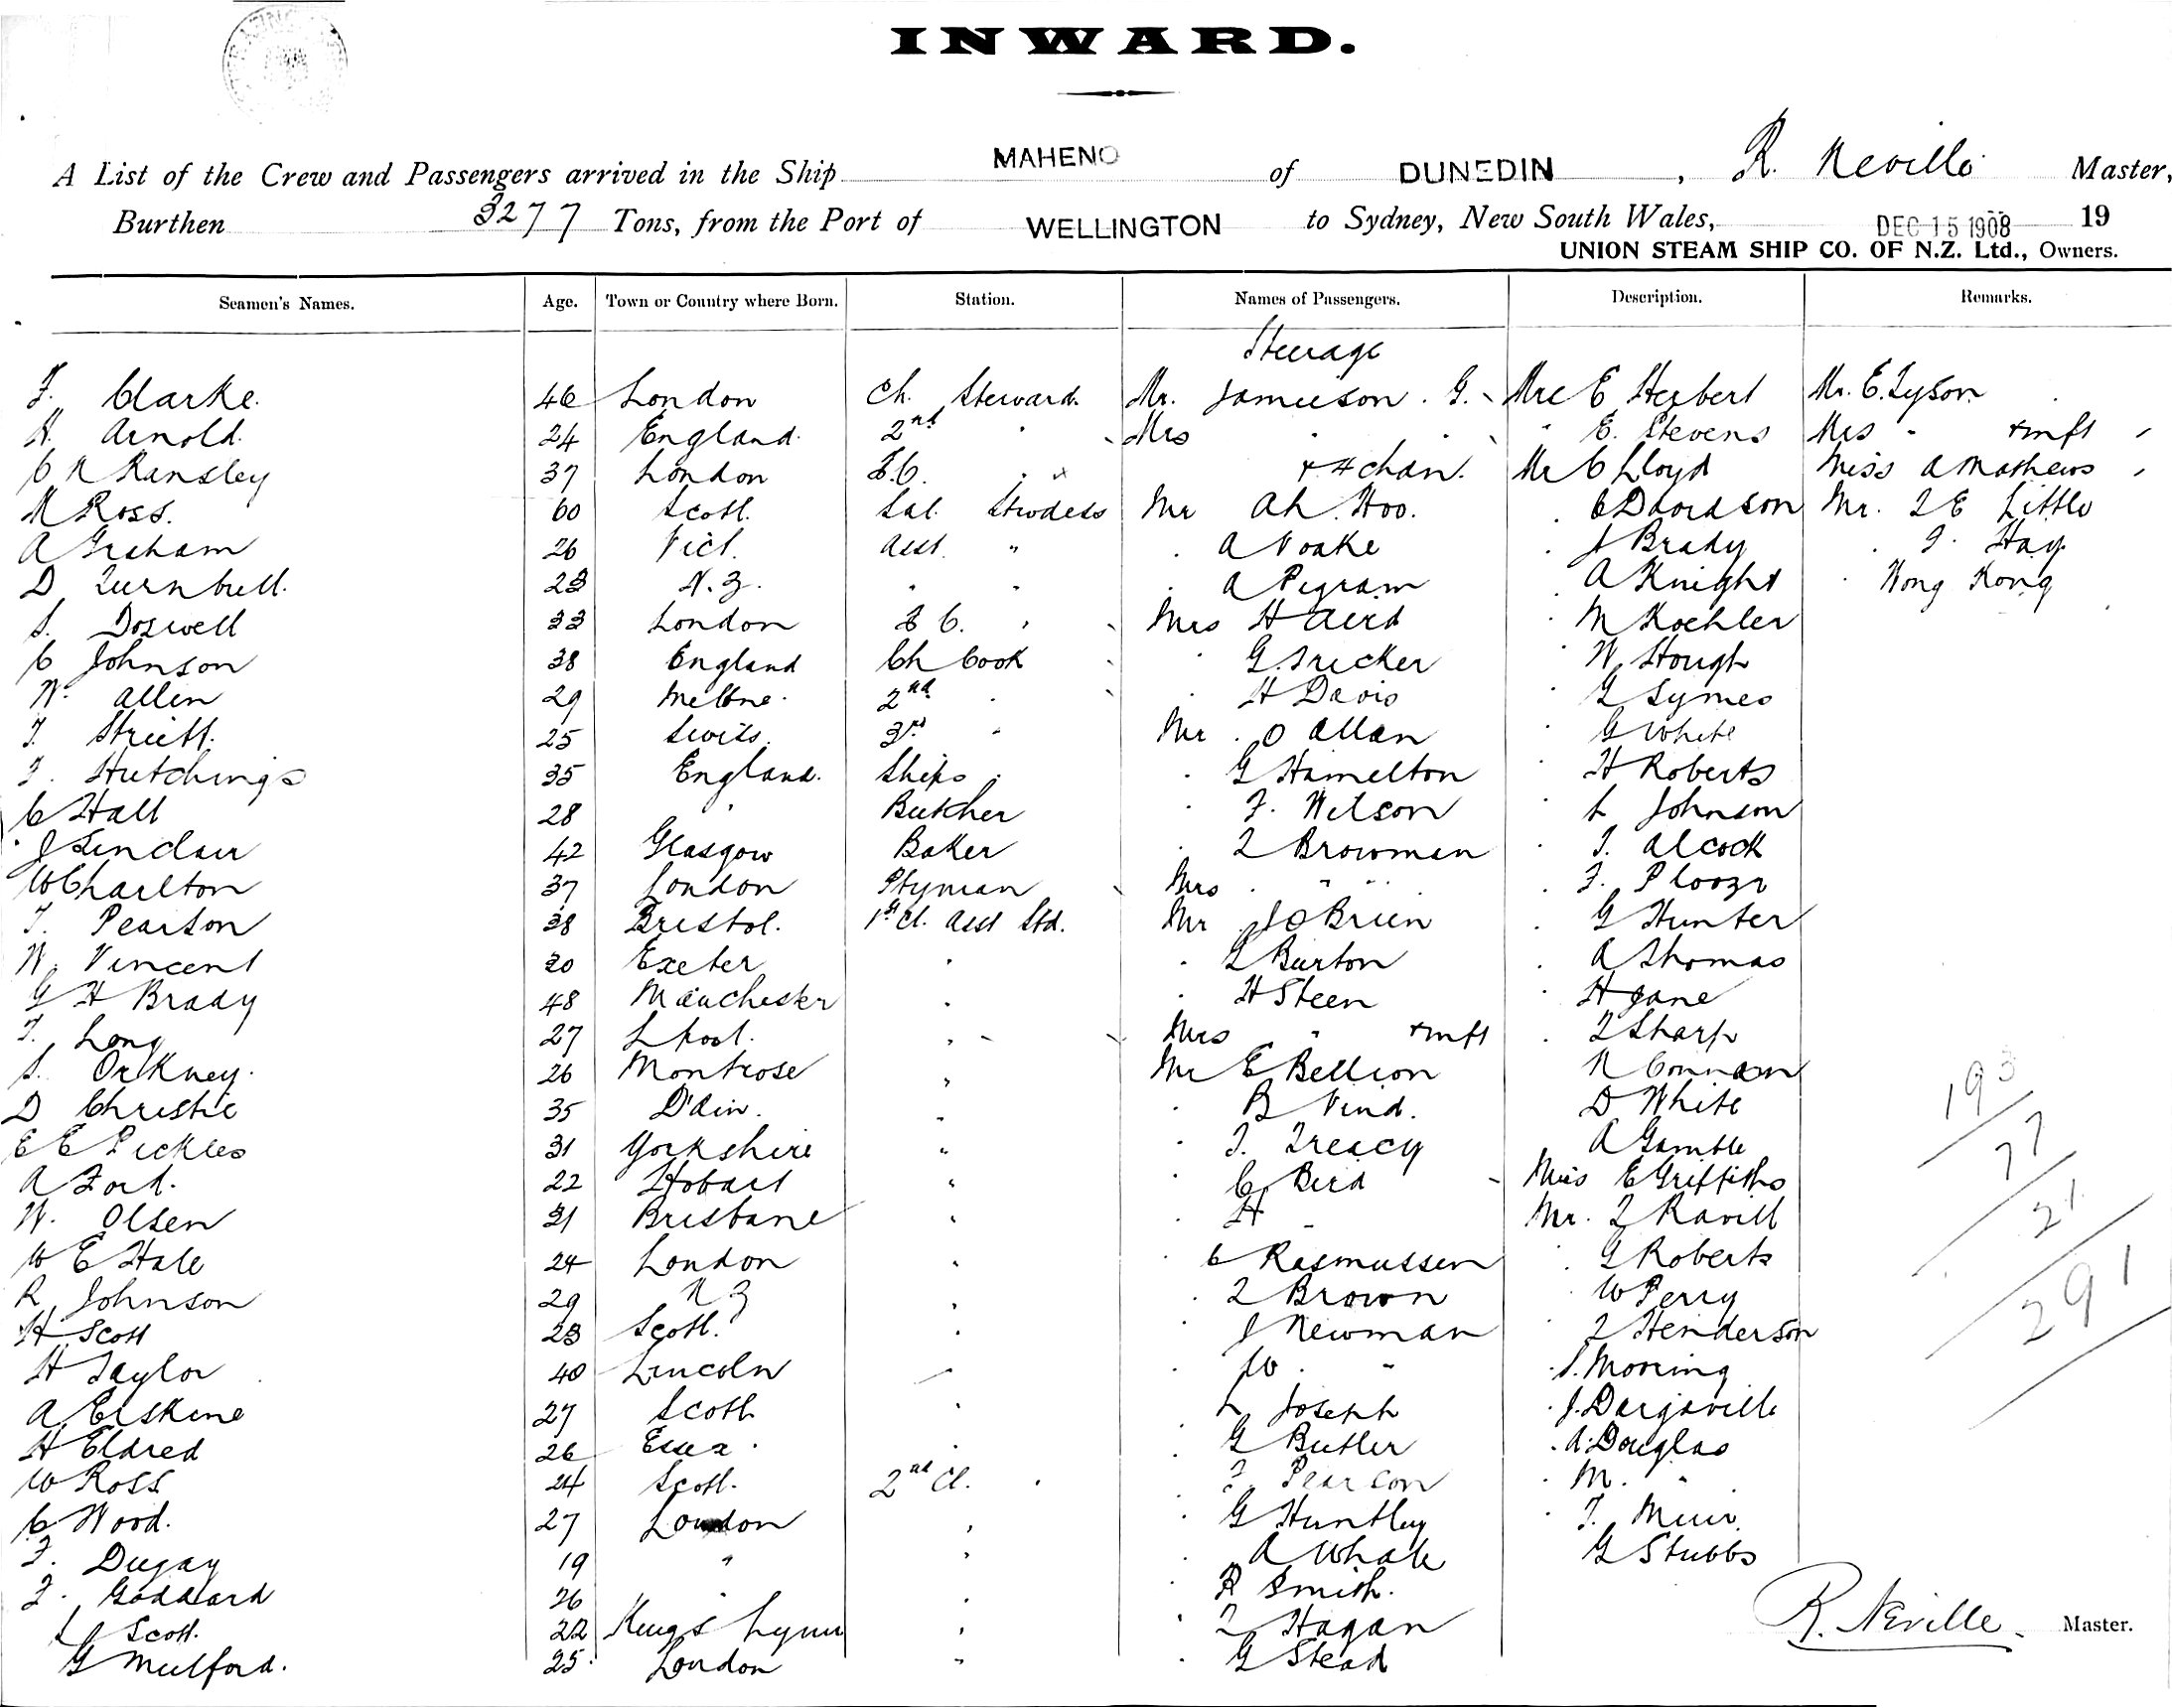 INWARD.
A List of the Crew and Passengers arrived in the Ship MAHENO of DUNEDIN, R. Neville Master,
Burthen 3277 Tons, from the Port of WELLINGTON to Sydney, New South Wales, DEC 15 1908 19
UNION STEAM SHIP CO. OF N.Z. Ltd., Owners.
Seamen's Names. Age. Town or Country where Born. Station. Names of Passengers. Description. Remarks.
Steerage
F. Clarke. 46 London Ch. Steward. Mr. Jamieson. G. Mrs E Herbert Mr. E. Tyson
H. Arnold. 24 England. 2nd " Mrs " " " E. Stevens Mrs " + inft
C R Ransley 37 London F.C. " " + 4 chdn. Mr C Lloyd Miss A Mathews
M Ross. 60 Scotl. Sal. Stwdess Mr Ah. Hoo. " C Davidson Mr. T E Little
A Graham 26 Vict. Asst. " " A Voake " J Brady " J. Hay
D Turnbull. 23 N.Z. " " " A Pegram " A Knight " Wong Kong
S. Doswell 33 London F C. " Mrs H Aird " M Koehler
C Johnson 38 England Ch Cook " G. Tricker " W. Hough
W. Allen 29 Melbne. 2nd " " H Davis " G Symes
T. Streiff. 25 Swiss. 3rd " Mr. O Allan " G White
F. Hutchings 35 England. Ships " " G Hamilton " H Roberts
C Hall 28 " Butcher " F. Wilson " L Johnson
J Sinclair 42 Glasgow Baker " T Browman " T. Alcock
W Charlton 37 London Ptyman Mrs " " "
T. Pearson 38 Bristol. 1st Cl. Asst Std. Mr J O Brien " G Hunter
W. Vincent 20 Exeter " " T Burton " A Thomas
G H Brady 48 Manchester " " H Steen " H Jane
T. Long 27 Lpool. " " Mrs " + inft " T Sharp
S. Orkney. 26 Montrose " Mr E Bellion
D Christie 35 D'din. " " B Vind. " D White
E E Pickles 31 Yorkshire " " T. Treacy " A Gamble
A Ford. 22 Hobart " " C Bird Miss E Griffiths
W. Olsen 31 Brisbane " " H " Mr. T Ravill
W E Hale 24 London " " C Rasmussen " G Roberts
R Johnson 29 N Z " " T Brown " W Perry
H Scott 23 Scotl. " " J Newman " T Henderson
H Taylor 40 Lincoln " " W. "
A Erskine 27 Scotl. " " L Joseph " J. Dargaville
H Eldred 26 Essex. " " G Butler " A. Douglas
W Ross 24 Scotl. 2nd Cl. " " F. Pearson " M. "
C Wood. 27 London " " G Huntley " T. Muir
F. Dugay 19 " " " A Whale " G Stubbs
F. Goddard 26 " " " R Smith.
L J Scott. 22 Kings Lynn " " T Hagan
G Mulford. 25 London " " G Stead
193
77
21
291
R. Neville. Master.